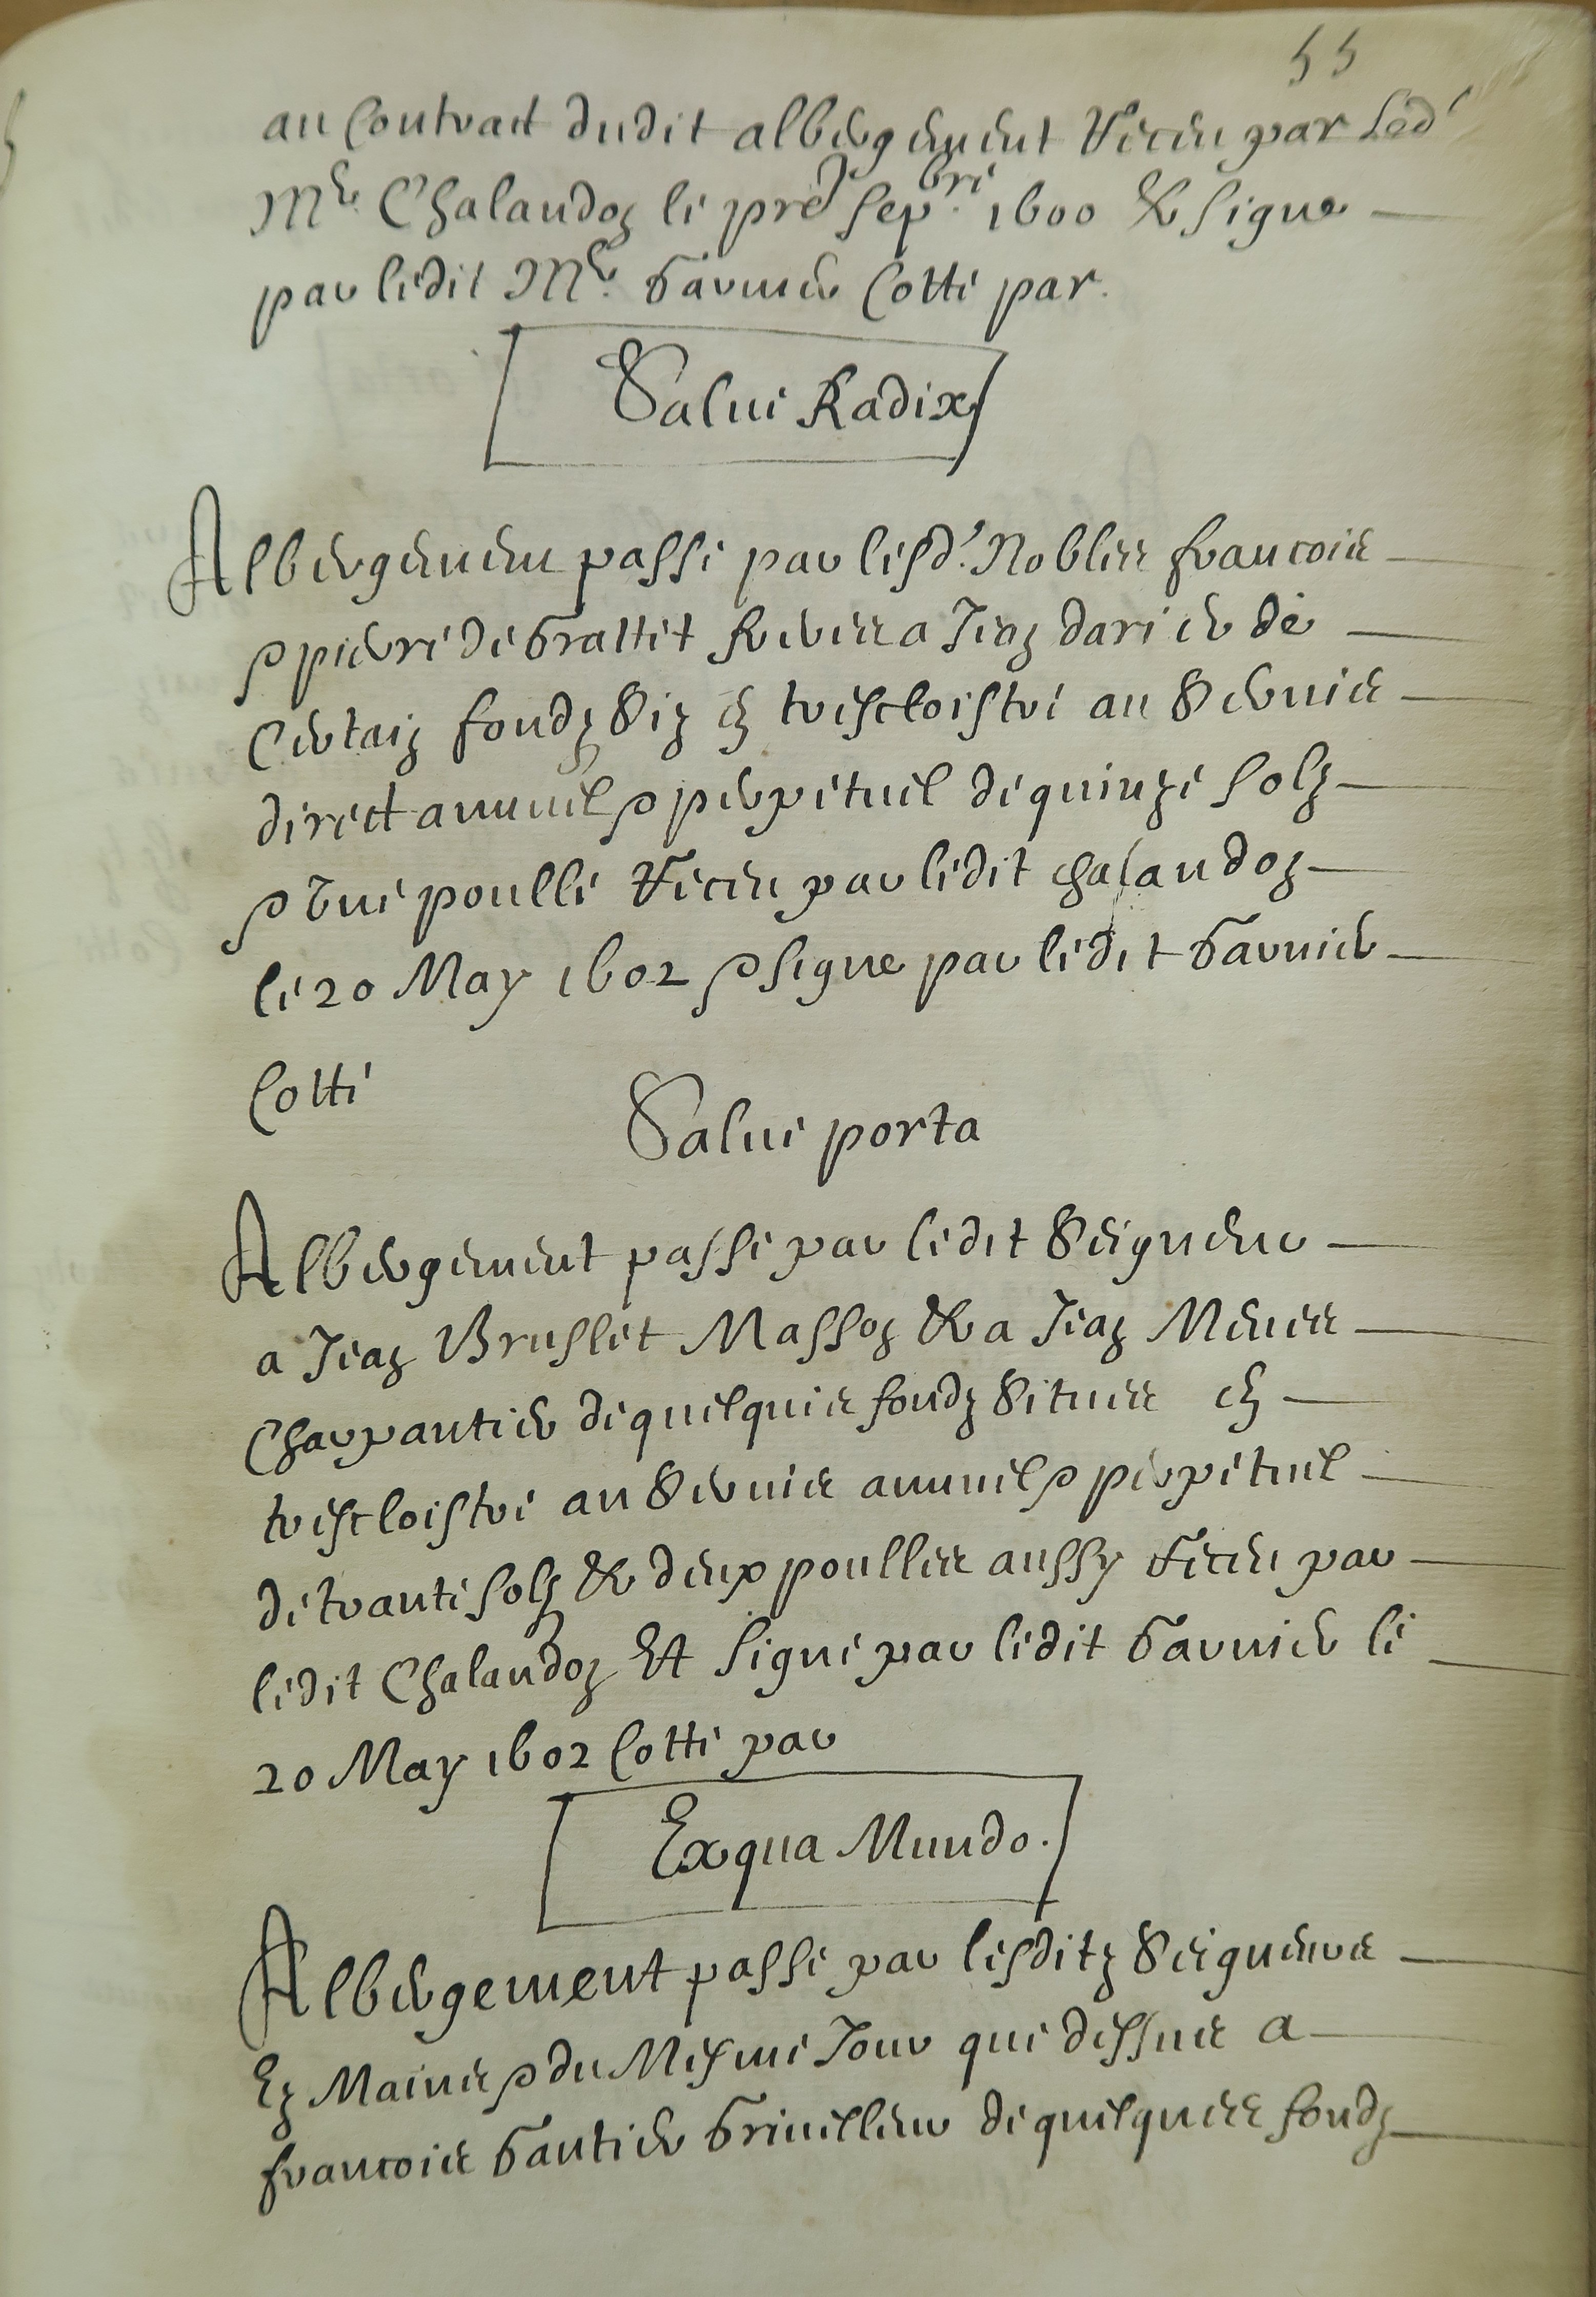 55
au Contract dudit albergement Receu par Led'
Mre Chalandoz le pred Sepbre 1600 & Signe
par ledit Mre Garnier Cotté par.
Salue Radix
Albergemen passé par lesd. Nobles francois
& pierre de Grattet freres a Jean darier de
Certain fondz Siz en trescloistre au Seruice
direct annuel & perpetuel de quinze Solz
& Vne poulle Receu par ledit chalandoz
le 20 May 1602 & signe par ledit Garnier
Cotté
Salue porta
Albergement passé par ledit Seigneur
a Jean Bruslet Masson & a Jean
Charpantier de quelques fondz Situes en
trescloistre au Seruice annuel & perpetuel
de trante solz & deux poulles aussy Receu par
ledit Chalandoz Et Signé par ledit Garnier le
20 May 1602 Cotté par
Ex qua Mundo.
Albergement passé par lesditz Seigneurs
Ez Maines & du Mesme Jour que dessus a
francois Gautier de quelques fondz